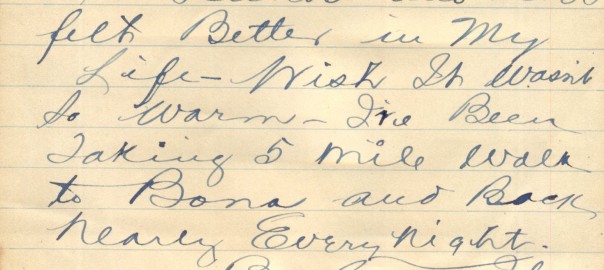 felt Better in My
Life - Wish It Wasn't
so Warm - I've Been
Taking 5 Mile Walk
to Bona and Back
Nearly Every Night.